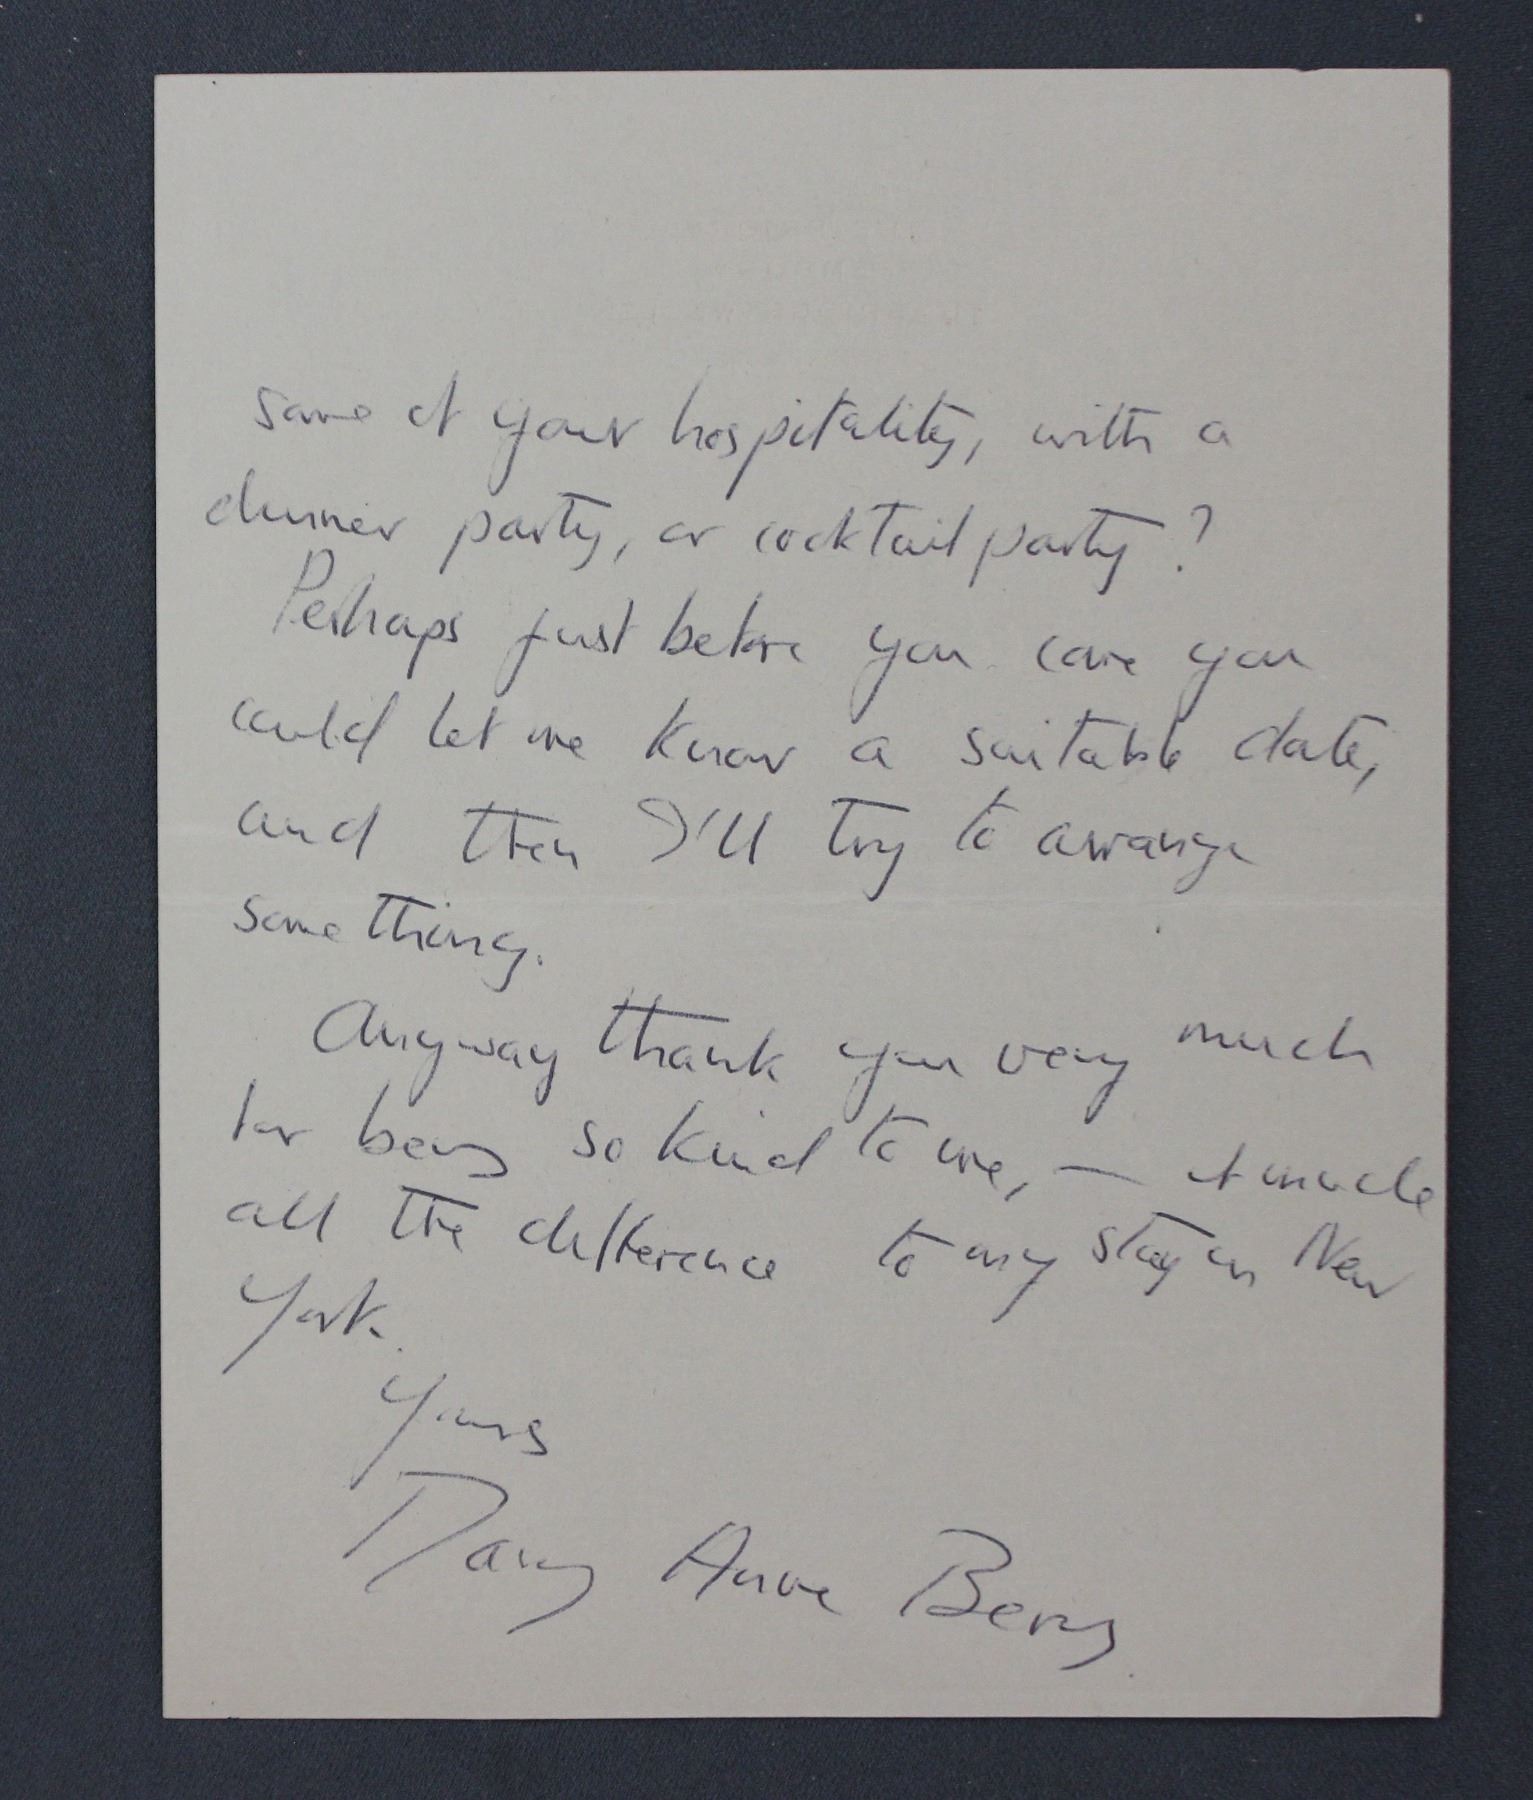 some of your hospitality, with a
dinner party, or cocktail party?
Perhaps just before you come you
could let me know a suitable date,
and then I'll try to arrange
something.
Anyway thank you very much
for being so kind to me, — it made
all the difference to my stay in New
York.
Yours
Anne